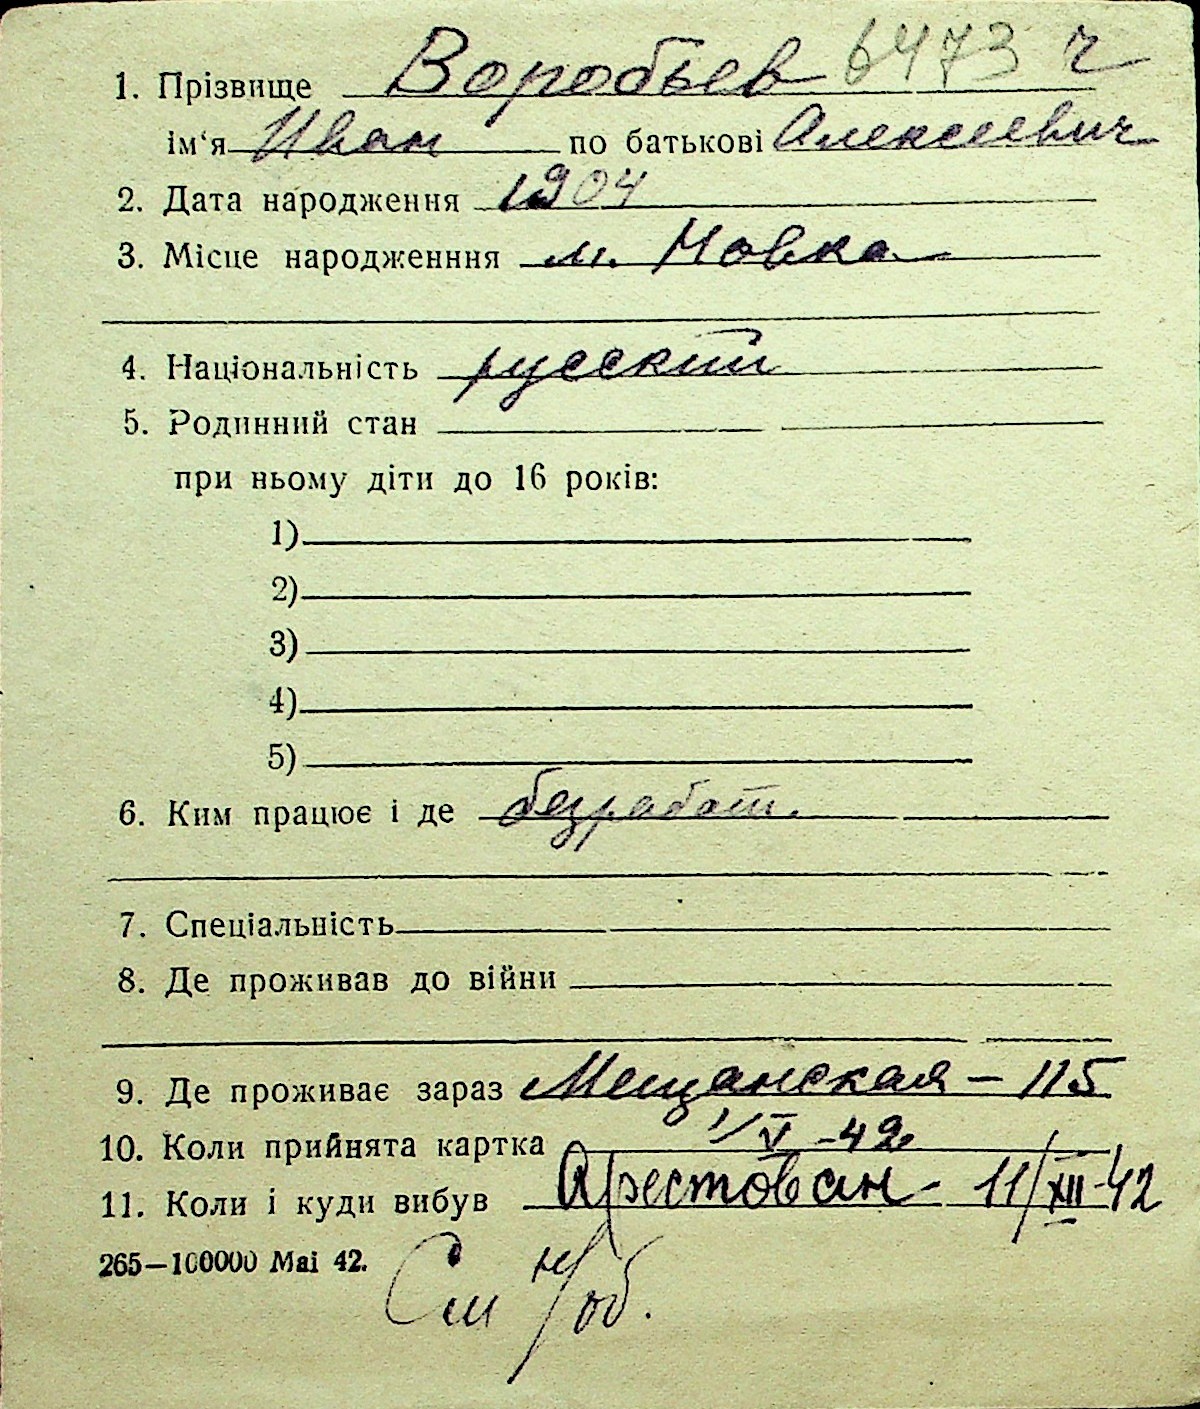 1. Прізвище Воробьев 6473 ч
ім'я Иван по батькові Алексеевич
2. Дата народження 1904
3. Місце народженння м. Новка
4. Національність русский
5. Родинний стан
при ньому діти до 16 років:
1)
2)
3)
4)
5)
6. Ким працює і де безработ.
7. Спеціальність
8. Де проживав до війни
9. Де проживає зараз Мещанская – 115
10. Коли прийнята картка 1/V -42
11. Коли і куди вибув Арестован - 11/XII-42
265—100000 Mai 42.
См н/об.